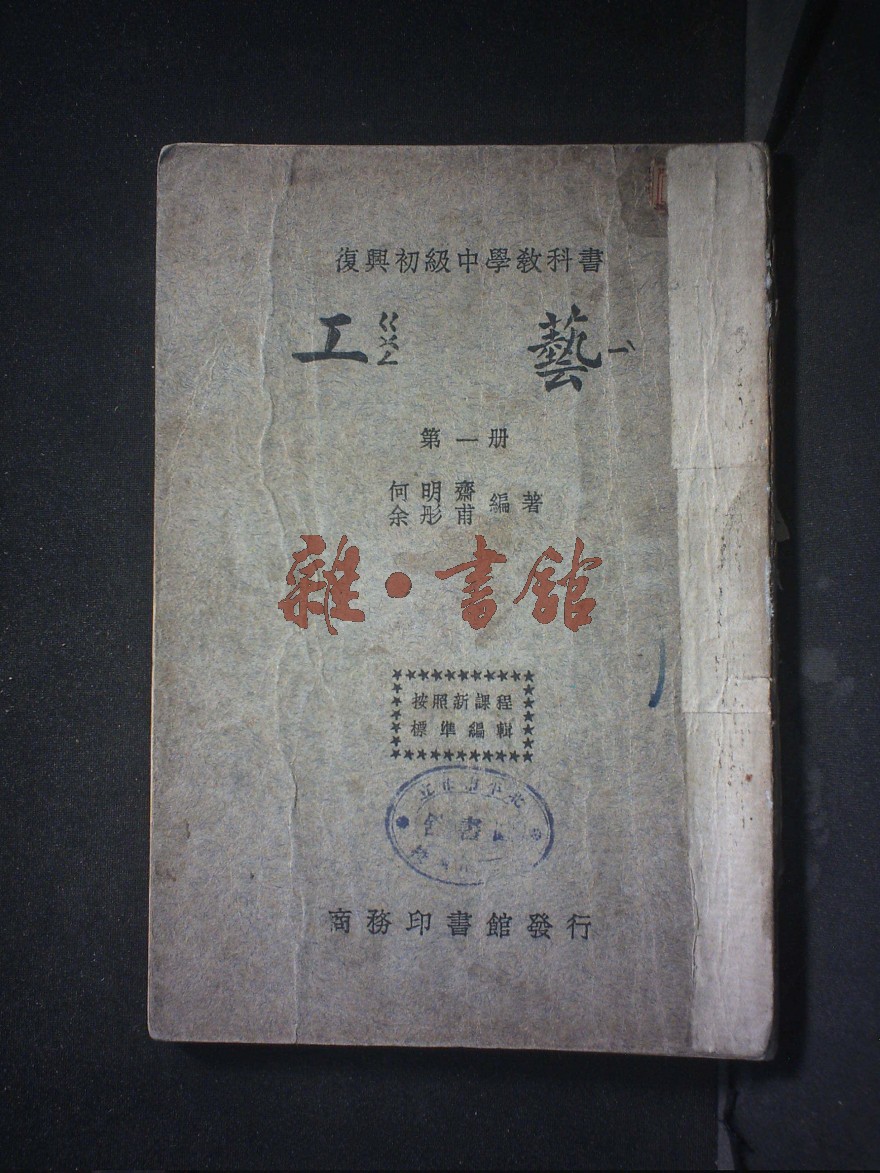 復興初級中學教科書
工ㄍㄨㄥ 藝ㄧˋ
第一册
何明齋
余彤甫
編著
雜·書館
按照新課程
標準編輯
商務印書館發行